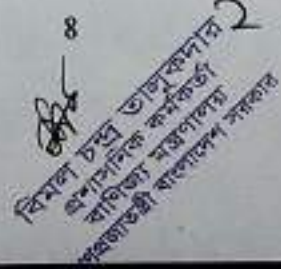 ৪
2
বিমল চন্দ্র তালুকদার
প্রশাসনিক কর্মকর্তা
বাণিজ্য মন্ত্রণালয়
গণপ্রজাতন্ত্রী বাংলাদেশ সরকার